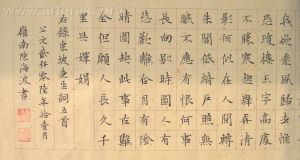 我欲乘風歸去惟
恐瓊樓玉宇高處
不勝寒起舞弄清
影何似在人間轉
朱閣低綺戶照無
眠不應有恨何事
長向別時圓人有
悲歡離合月有陰
晴圓缺此事古難
全但願人長久千
里共嬋娟
右錄東坡先生詞五首
公元貳仟零陸年拾壹月
嶺南陳波書